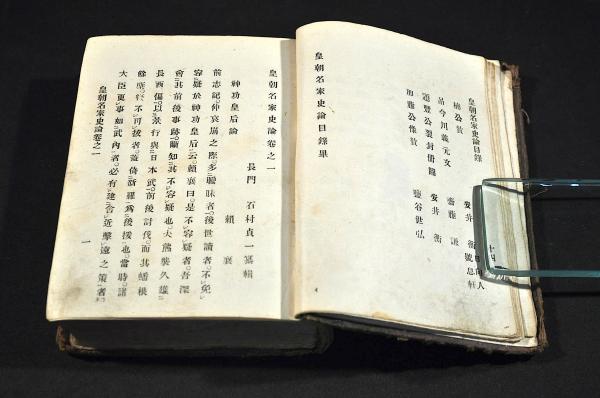 皇朝名家史論目錄
楠公賛
安井衡
吊今川義元文
齋藤謙
豐公裂封冊圖
安井衡
加藤公像賛
鹽谷世弘
皇朝名家史論目錄畢
皇朝名家史論卷之一
長門 石村貞一 纂輯
神功皇后論
賴襄
前志記仲哀崩之際多曖昧者後世讀者不免
容疑於神功皇后云賴襄曰是不容疑者吾深
會其前後事跡斷知其不容疑也夫熊襲久雄
長西偏以景行與日本武前後討伐而其蟠根
餘孽終不可拔者蓋倚新羅爲後援也當時諸
大臣更事如武內者必有建舍近擊遠之策者
皇朝名家史論卷之一
一